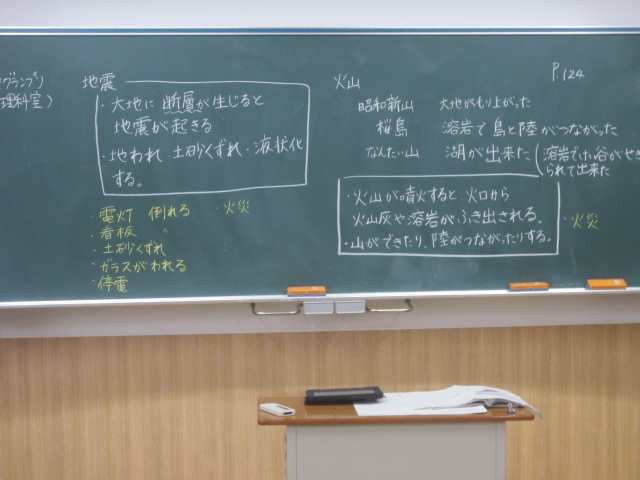 グランプリ
理科室)
地震
・大地に断層が生じると
地震が起きる
・地われ 土砂くずれ・液状化
する。
・電灯 倒れる ・火災
・看板 〃
・土砂くずれ
・ガラスがわれる
・停電
火山
P.124
昭和新山 大地がもり上がった
桜島 溶岩で島と陸がつながった
なんたい山 湖が出来た (溶岩でけい谷がせき
られて出来た
・火山が噴火すると、火口から
火山灰や溶岩がふき出される。
・山ができたり、陸がつながったりする。
・火災